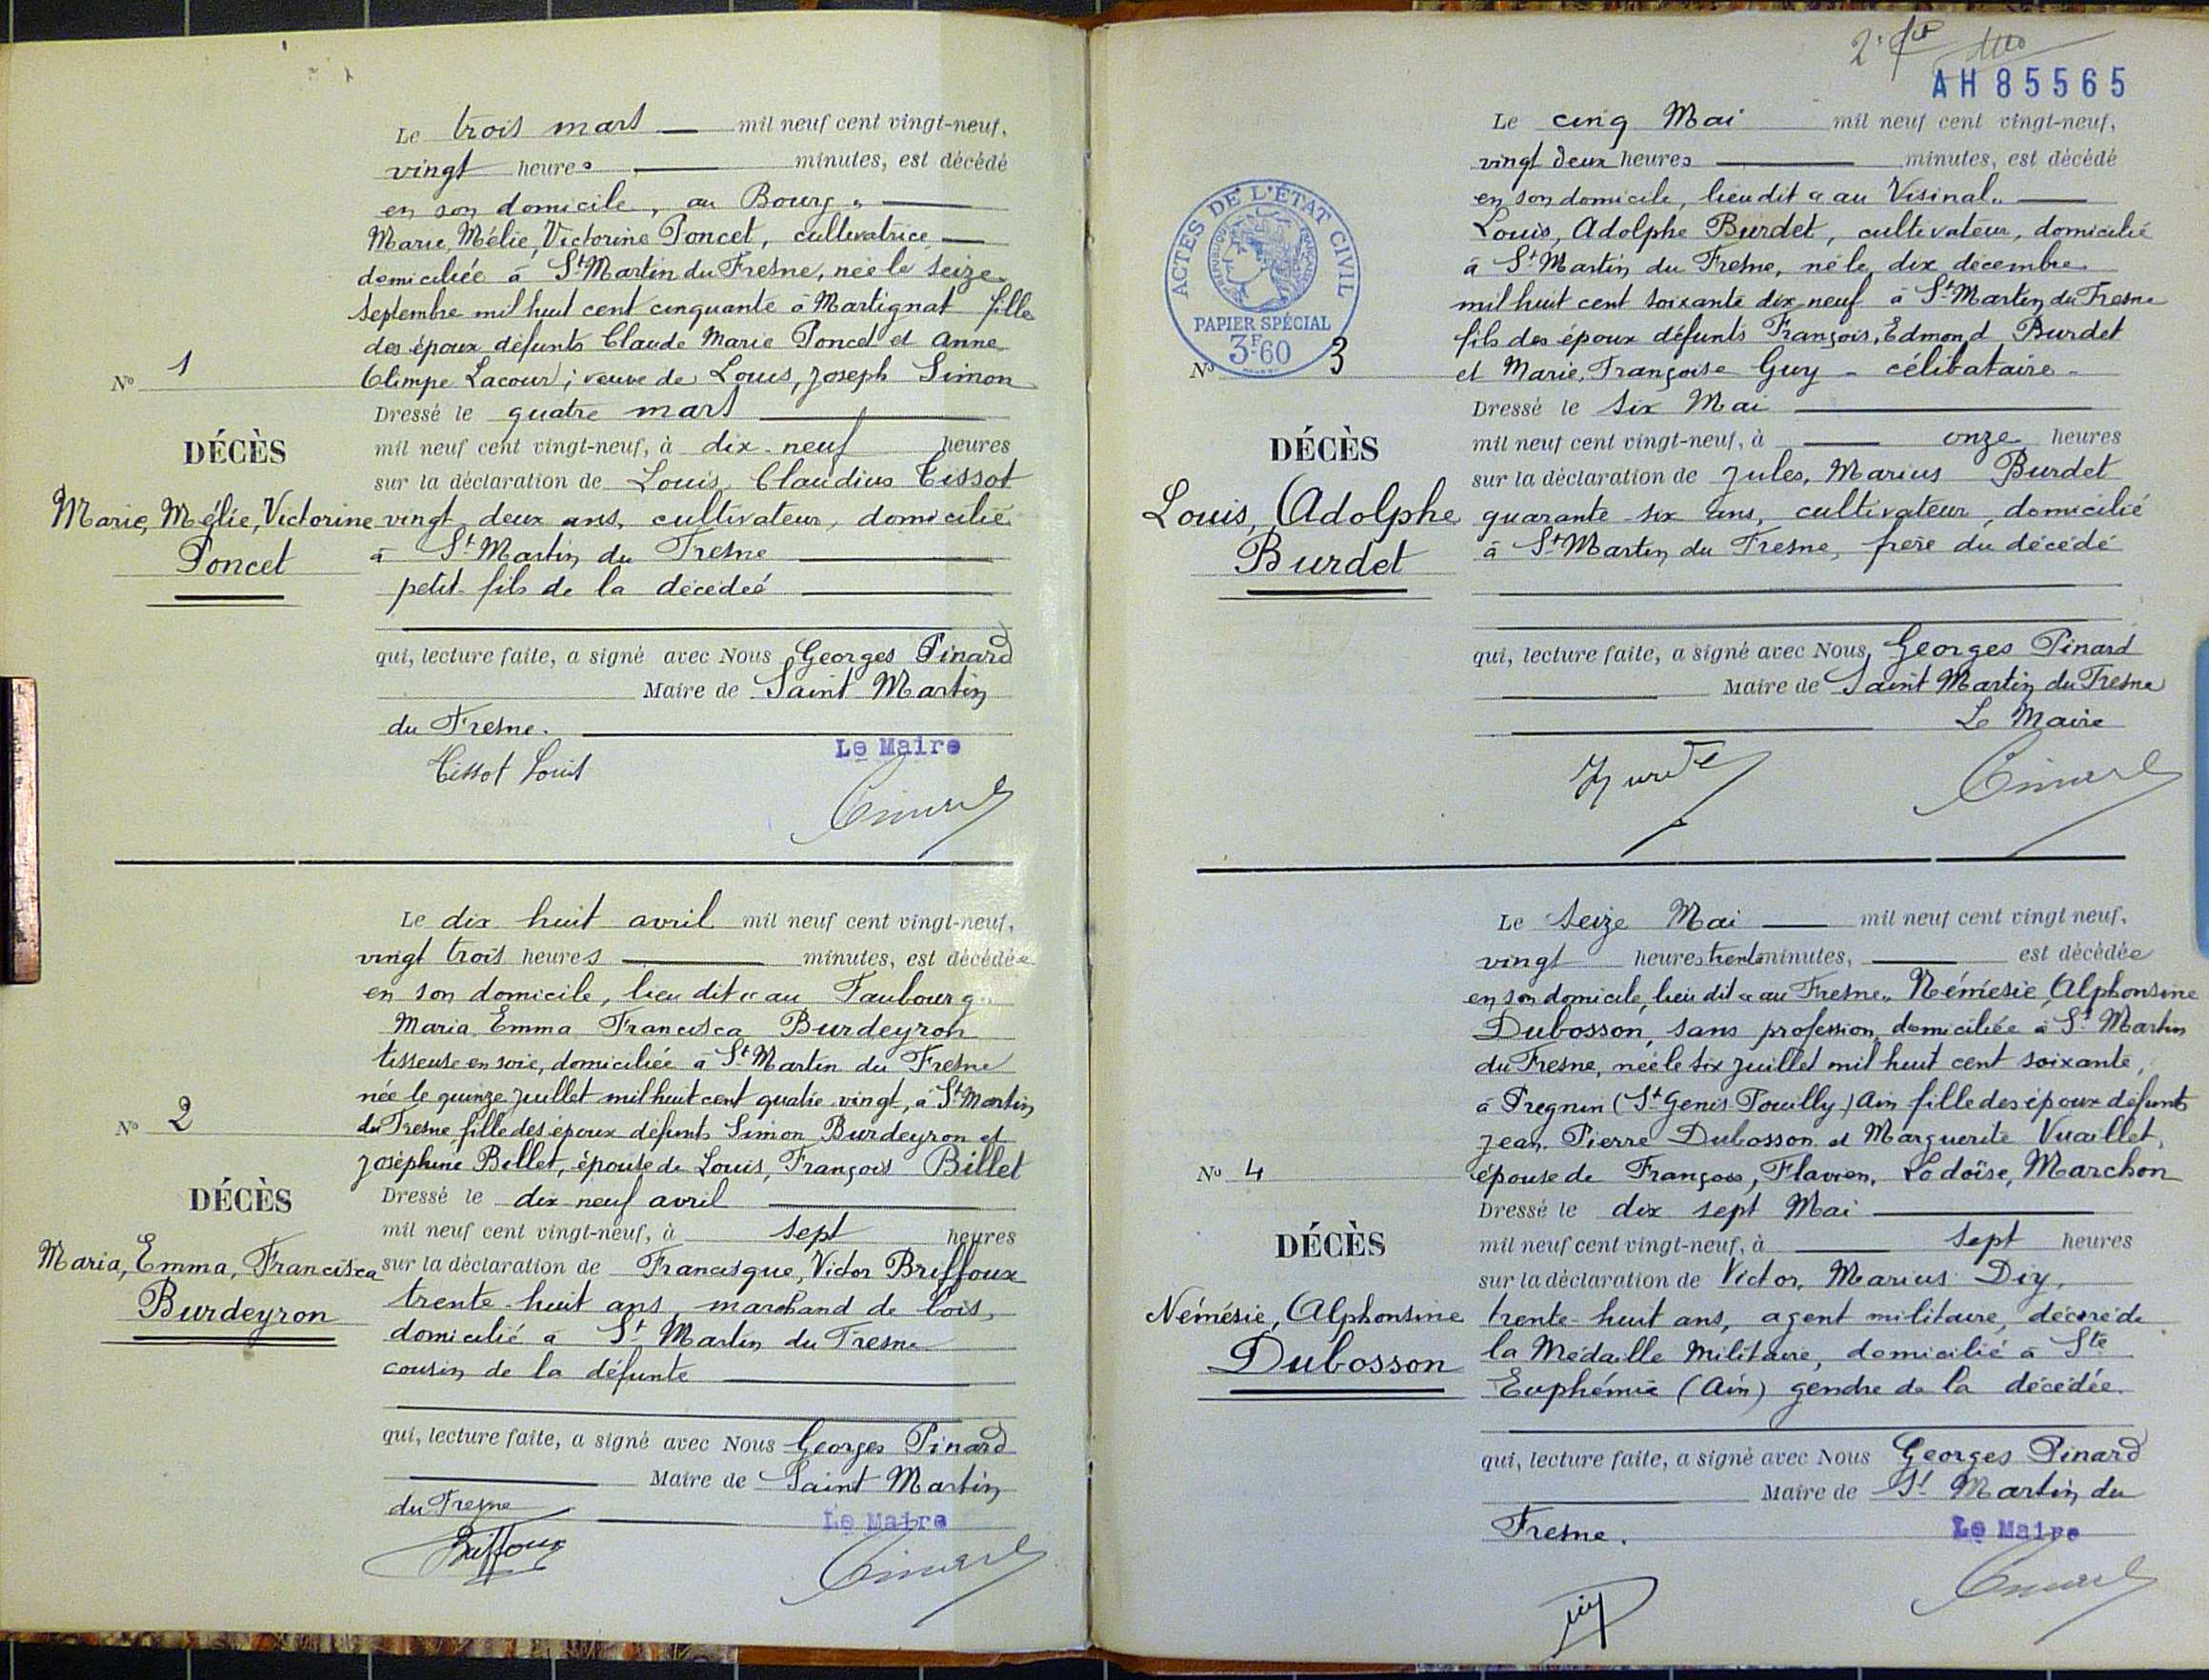 Le trois mars mil neuf cent vingt-neuf,
vingt heures minutes, est décédé
en son domicile, au Bourg "
Marie, Mélie, Victorine Poncet, cultivatrice
domiciliée à St Martin du Fresne, née le seize
septembre mil huit cent cinquante à Martignat fille
des époux défunts Claude Marie Poncet et Anne
Olimpe Lacour ; veuve de Louis, Joseph Simon
Dressé le quatre mars
mil neuf cent vingt-neuf, à dix-neuf heures
sur la déclaration de Louis, Claudius Tissot
vingt deux ans, cultivateur, domicilié
à St Martin du Fresne
petit-fils de la décédée
qui, lecture faite, a signé avec Nous Georges Pinard
Maire de Saint Martin
du Fresne.
Tissot Louis
Le Maire
Pinard
No 1
DÉCÈS
Marie, Mélie, Victorine
Poncet
Le dix huit avril mil neuf cent vingt-neuf,
vingt trois heures minutes, est décédée
en son domicile, lieu dit « au Faubourg "
Maria Emma Francisca Burdeyron
tisseuse en soie, domiciliée à St Martin du Fresne
née le quinze juillet mil huit cent quatre vingt, à St Martin
du Fresne fille des époux défunts Simon Burdeyron et
Joséphine Billet, épouse de Louis, François Billet
Dressé le dix neuf avril
mil neuf cent vingt-neuf, à sept heures
sur la déclaration de Francisque, Victor Briffoux
trente-huit ans, marchand de bois,
domicilié à St Martin du Fresne
cousin de la défunte
qui, lecture faite, a signé avec Nous Georges Pinard
Maire de Saint Martin
du Fresne
Le Maire
Briffoux
Pinard
No 2
DÉCÈS
Maria, Emma, Francisca
Burdeyron
AH 85565
Le cinq Mai mil neuf cent vingt-neuf,
vingt deux heures minutes, est décédé
en son domicile, lieu dit « au Visinal "
Louis, Adolphe Burdet, cultivateur, domicilié
à St Martin du Fresne, né le dix décembre
mil huit cent soixante dix neuf à St Martin du Fresne
fils des époux défunts François, Edmond Burdet
et Marie, Françoise Guy - célibataire -
Dressé le six Mai
mil neuf cent vingt-neuf, à onze heures
sur la déclaration de Jules, Marius Burdet
quarante-six ans, cultivateur, domicilié
à St Martin du Fresne, frère du décédé
qui, lecture faite, a signé avec Nous, Georges Pinard
Maire de Saint Martin du Fresne
Le Maire
Pinard
ACTES DE L'ÉTAT CIVIL
RÉPUBLIQUE FRANÇAISE
PAPIER SPÉCIAL
3F60
No 3
DÉCÈS
Louis, Adolphe
Burdet
Le seize Mai mil neuf cent vingt neuf,
vingt heures trente minutes, est décédée
en son domicile, lieu dit « au Fresne " Némésie, Alphonsine
Dubosson, sans profession, domiciliée à St Martin
du Fresne, née le six juillet mil huit cent soixante,
à Pregnin (St Genis Pouilly) Ain fille des époux défunts
Jean, Pierre Dubosson et Marguerite Vuaillet,
épouse de François, Flavien, Lodoïse, Marchon
Dressé le dix sept Mai
mil neuf cent vingt-neuf, à sept heures
sur la déclaration de Victor, Marius Diy,
trente-huit ans, agent militaire, décoré de
la Médaille Militaire, domicilié à Ste
Euphémie (Ain) gendre de la décédée.
qui, lecture faite, a signé avec Nous Georges Pinard
Maire de St Martin du
Fresne.
Le Maire
Pinard
No 4
DÉCÈS
Némésie, Alphonsine
Dubosson